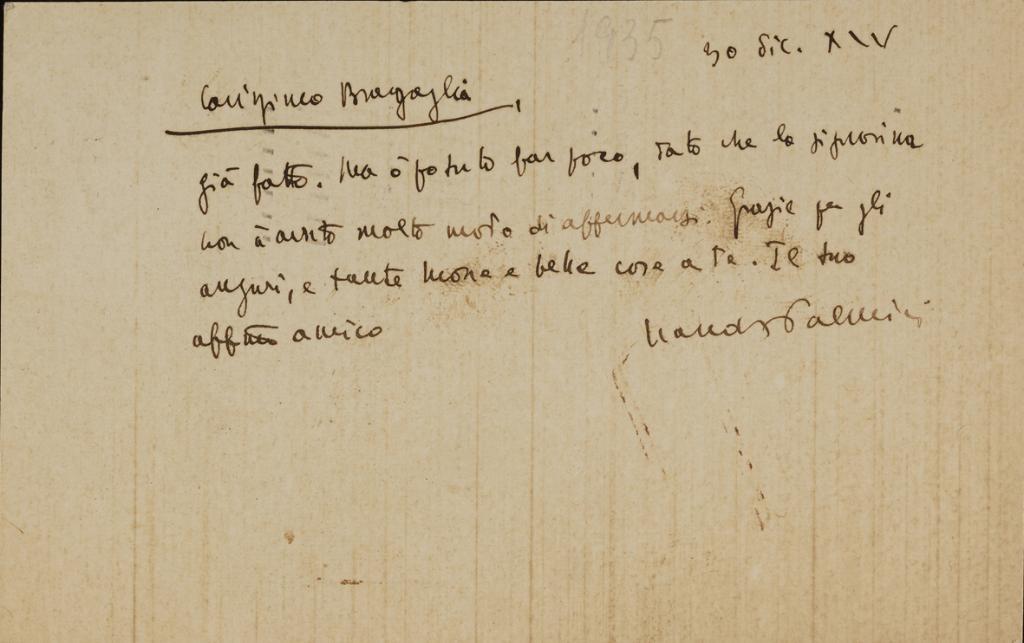 1935
30 dic. XIV
Carissimo Bragaglia,
già fatto. Ma ò potuto far poco, dato che la signorina
non à avuto molto modo di affermarsi. Grazie per gli
auguri, e tante buone e belle cose a te. Il tuo
aff.mo amico
Nando Palmieri